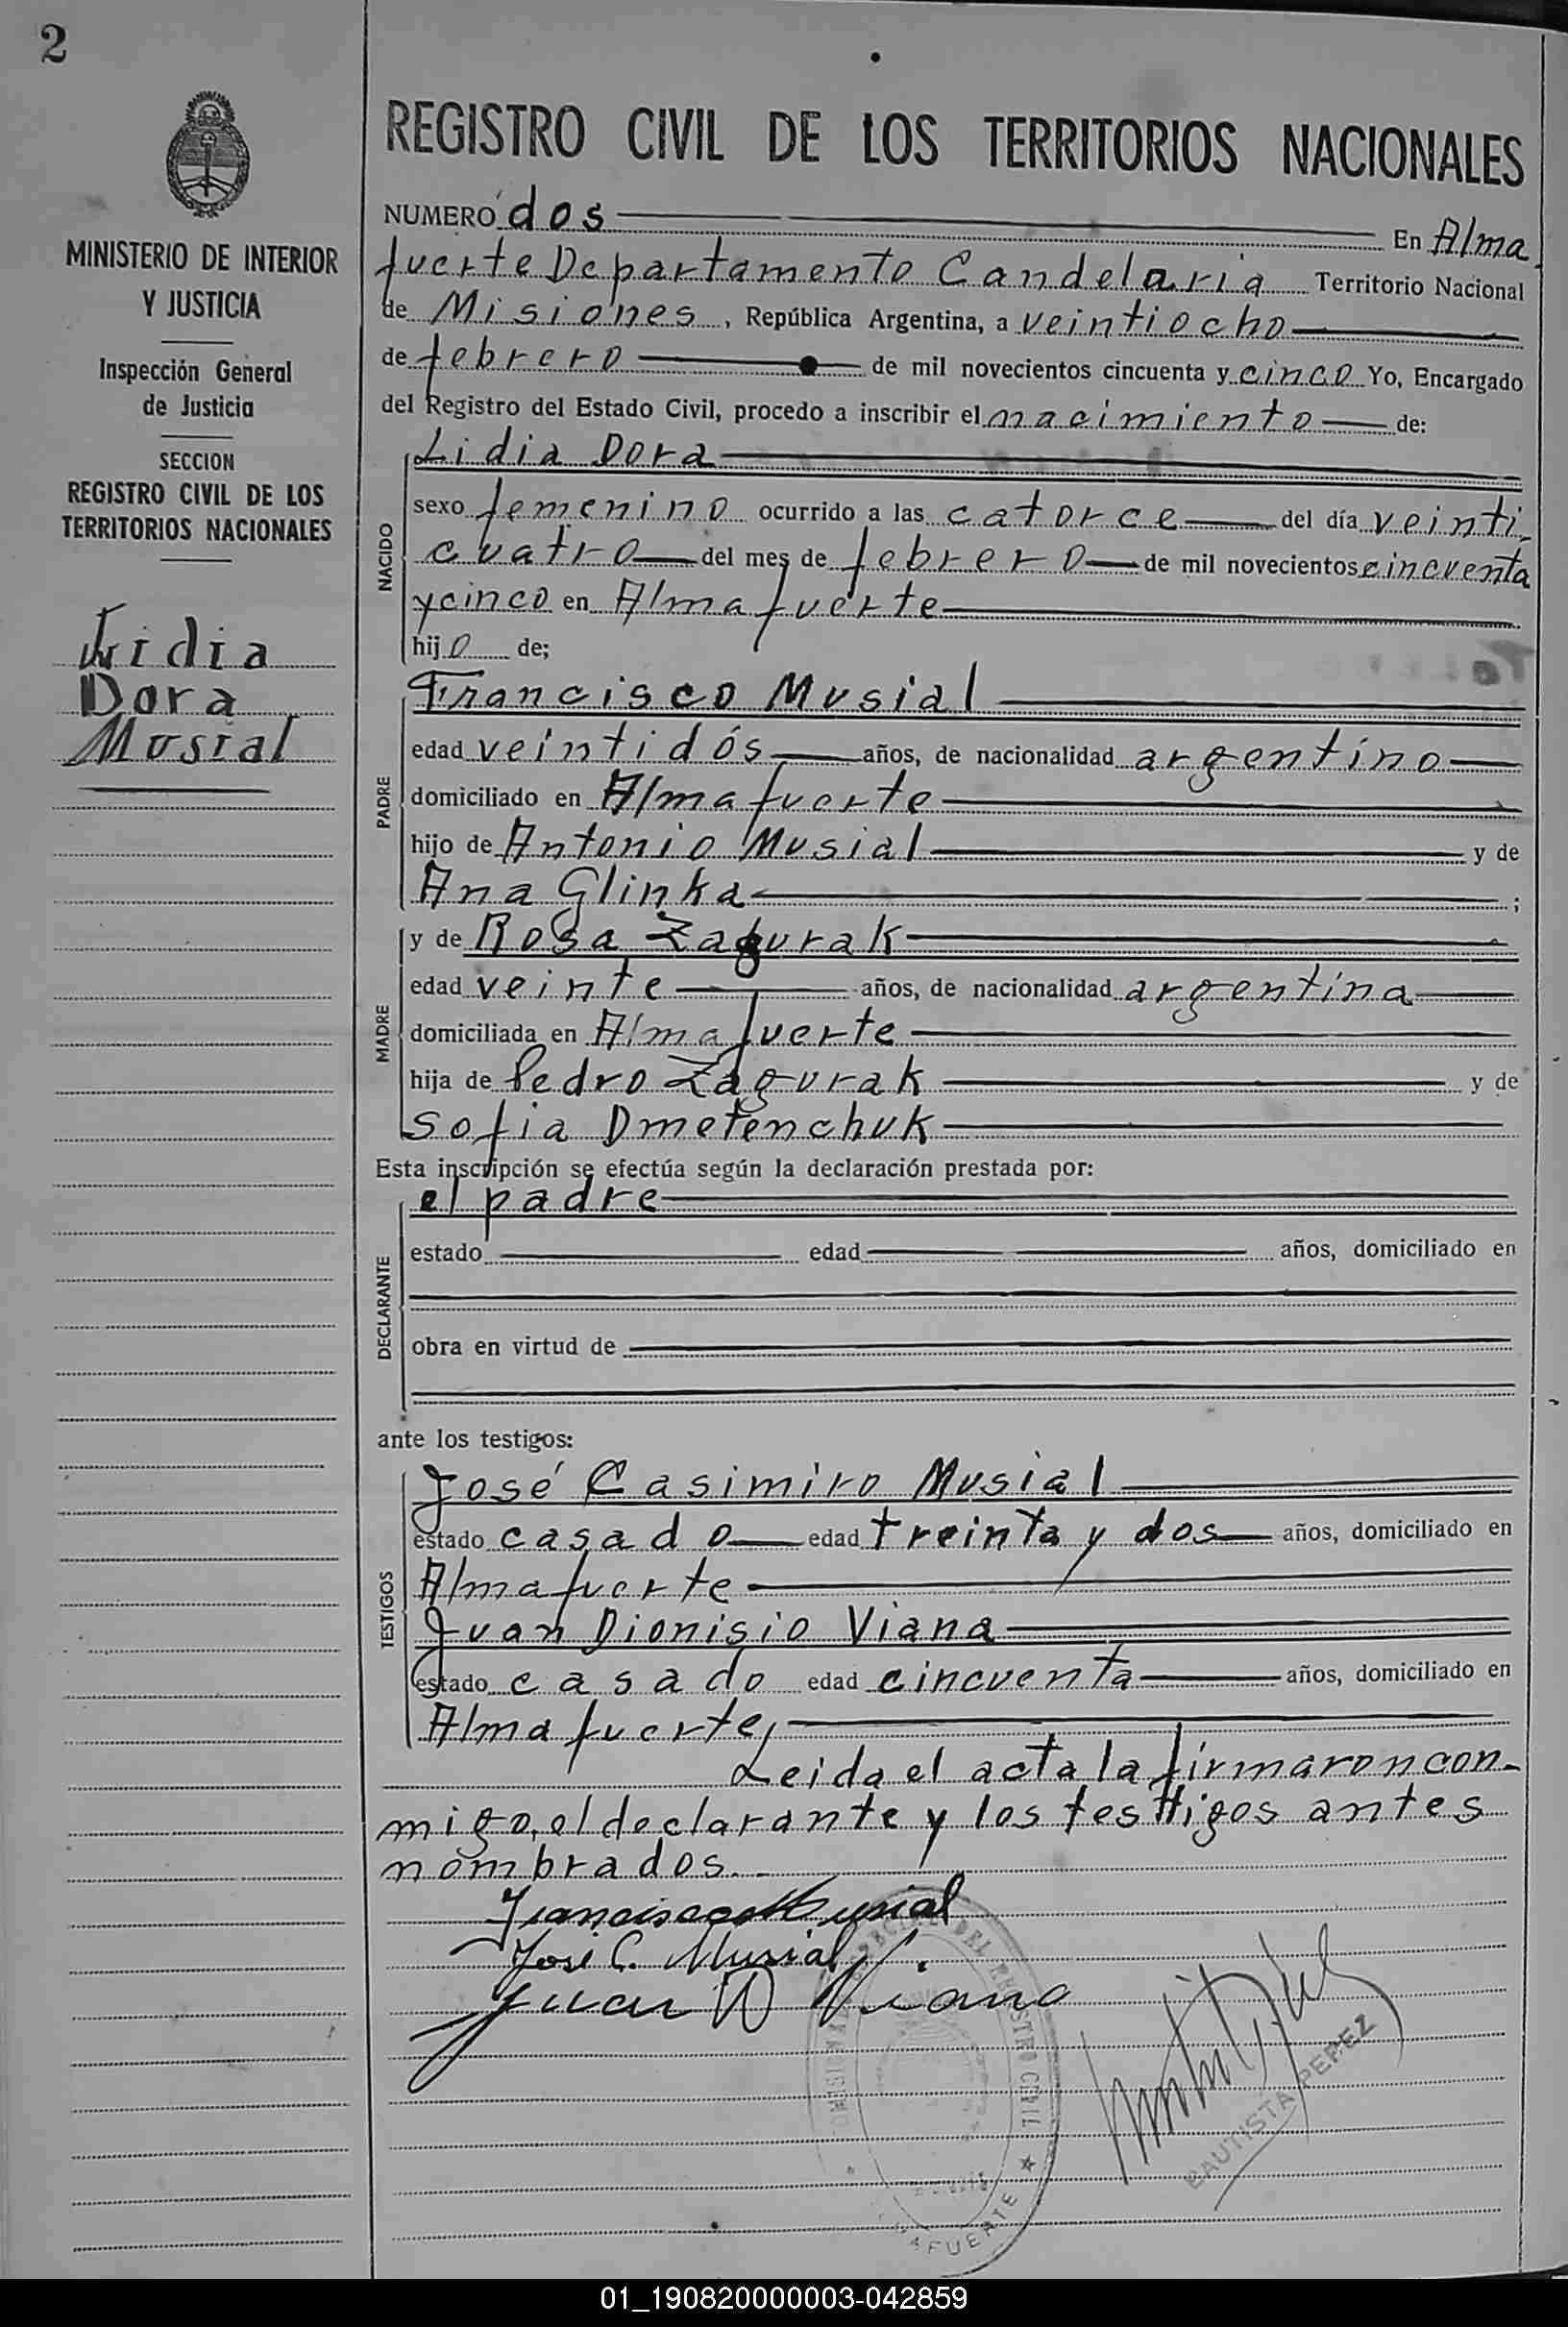 2
MINISTERIO DE INTERIOR
Y JUSTICIA
Inspección General
de Justicia
SECCION
REGISTRO CIVIL DE LOS
TERRITORIOS NACIONALES
Lidia
Dora
Musial
REGISTRO CIVIL DE LOS TERRITORIOS NACIONALES
NUMERO dos En Alma
fuerte Departamento Candelaria Territorio Nacional
de Misiones, República Argentina, a veintiocho
de febrero de mil novecientos cincuenta y cinco Yo, Encargado
del Registro del Estado Civil, procedo a inscribir el nacimiento de:
NACIDO
Lidia Dora
sexo femenino ocurrido a las catorce del día veinti
cuatro del mes de febrero de mil novecientos cincuenta
y cinco en Almafuerte
hijo de;
PADRE
Francisco Musial
edad veintidós años, de nacionalidad argentino
domiciliado en Almafuerte
hijo de Antonio Musial y de
Ana Glinka ;
MADRE
y de Rosa Zagurak
edad veinte años, de nacionalidad argentina
domiciliada en Almafuerte
hija de Pedro Zagurak y de
Sofia Dmetenchuk
Esta inscripción se efectúa según la declaración prestada por:
DECLARANTE
el padre
estado edad años, domiciliado en
obra en virtud de
ante los testigos:
TESTIGOS
José Casimiro Musial
estado casado edad treinta y dos años, domiciliado en
Almafuerte
Juan Dionisio Viana
estado casado edad cincuenta años, domiciliado en
Almafuerte,
Leida el acta la firmaron con-
migo, el declarante y los testtigos antes
nombrados.
Francisco Musial
José C. Musial
Juan D Viana
DEL REGISTRO CIVIL
BAUTISTA PEREZ
01_190820000003-042859